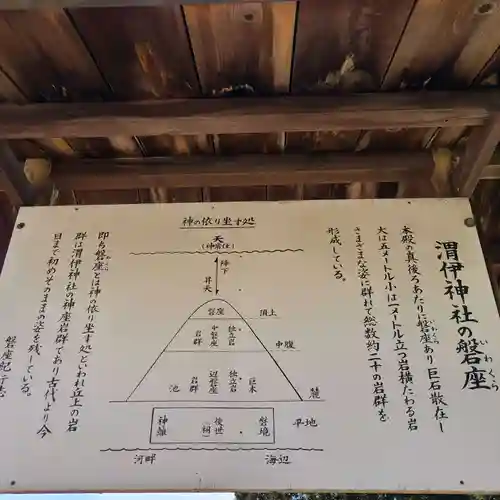 渭伊神社の磐座
いわくら
本殿の真後ろあたりに磐座あり巨石散在し
大は五メートル小は一メートル立つ岩横たわる岩
さまざまな姿に群れて総数約二十の岩群を
形成している。
神の依り坐す処
天
(神常住)
降下
昇天
磐座
頂上
中磐座
独立岩
岩群
中腹
池
岩群
辺磐座
独立岩
巨木
麓
神籬
後世
(祠)
磐境
平地
河畔
海辺
即ち磐座とは神の依り坐す処といわれ丘上の岩
群は渭伊神社の神座岩群であり古代より今
日まで初めそのままの姿を残している。
磐座紀行志